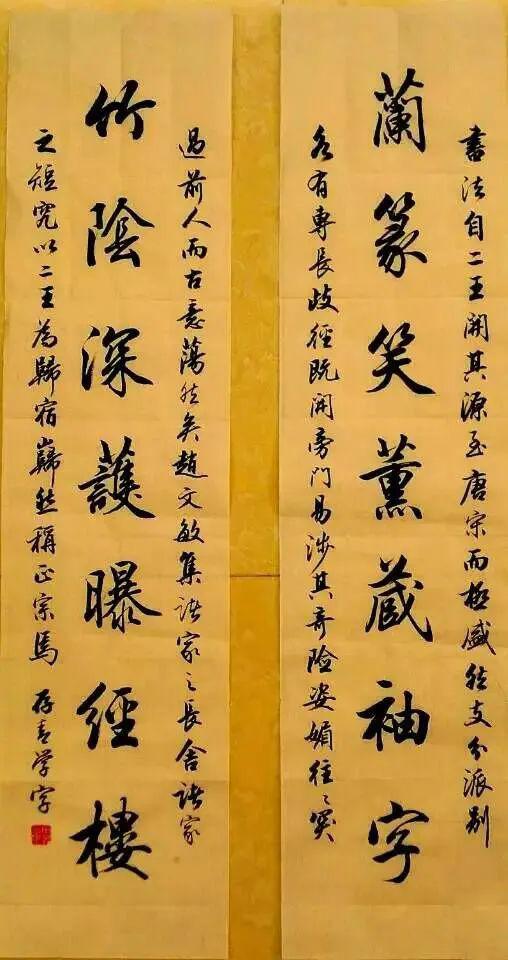 書法自二王開其源至唐宋而極盛然支分派別
蘭篆笑薰蔵袖字
各有專長歧徑既開旁門易涉其奇險姿媚往々突
過前人而古意蕩然矣趙文敏集諸家之長舍諸家
竹陰深護曝經樓
之短究以二王為歸宿巋然稱正宗焉 存青学字